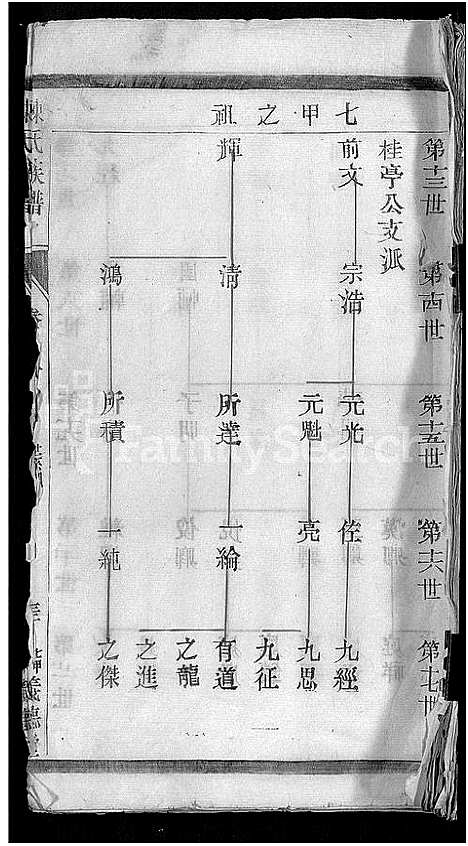 七甲之祖
第十三世
第十四世
第十五世
第十六世
第十七世
桂亭公支派
前文
宗浩
元光
佐
九經
元魁
亮
九思
九征
輝
清
所達
一綸
有道
之龍
之進
鴻
所積
一純
之傑
陳氏族譜
FamilySearch